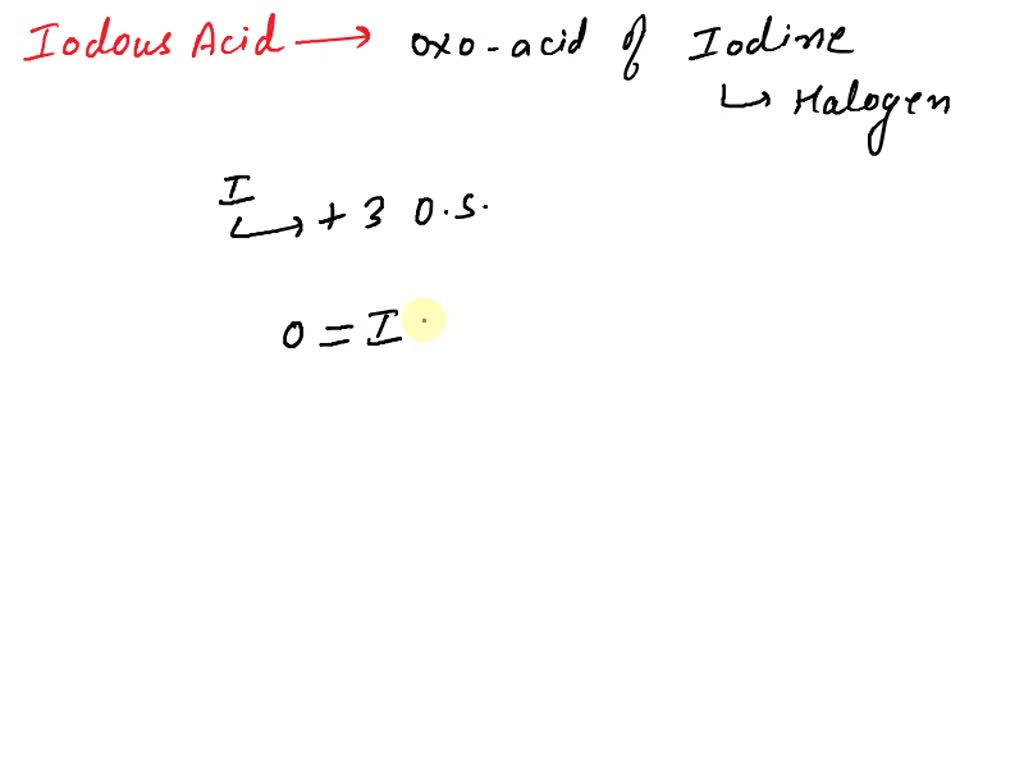 Iodous Acid → oxo-acid of Iodine
↳ Halogen
I
↳ +3 O.S.
O = I